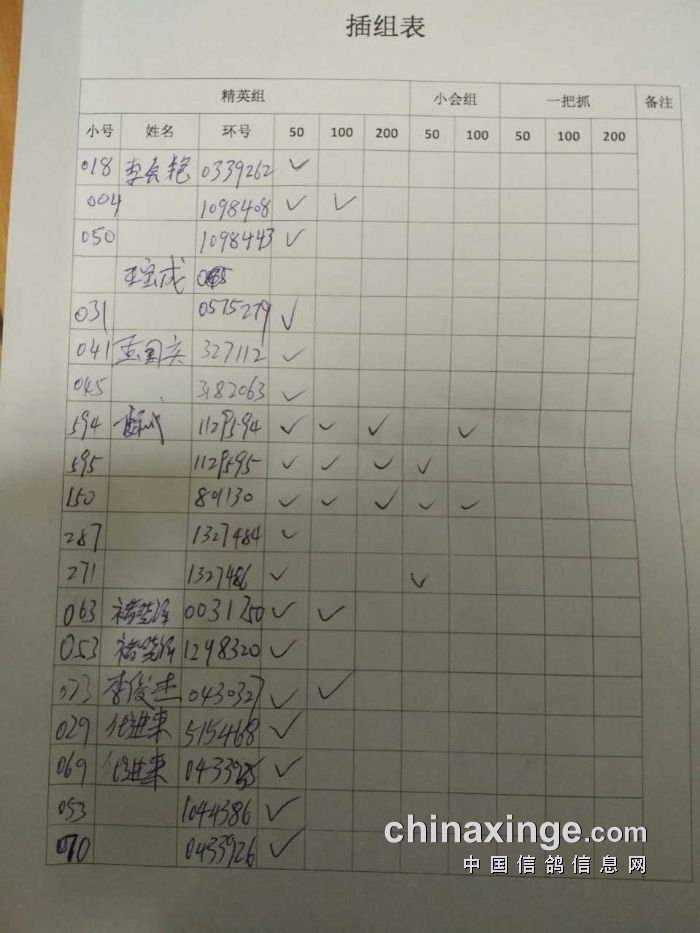 插组表
精英组 小会组 一把抓 备注
小号 姓名 环号 50 100 200 50 100 50 100 200
018 李长艳 0339262 ✓
004 1098408 ✓ ✓
050 1098443 ✓
王宝成
031 0575279 ✓
041 孟国庆 327112 ✓
045 3182063 ✓
594 1129594 ✓ ✓ ✓ ✓
595 1129595 ✓ ✓ ✓ ✓
150 801130 ✓ ✓ ✓ ✓ ✓
287 1327484 ✓
271 1327486 ✓ ✓
063 0031750 ✓ ✓
053 1298320 ✓
073 李俊杰 0430327 ✓ ✓
029 代进来 515468 ✓
069 代进来 ✓
053 1044386 ✓
070 0433926 ✓
chinaxinge.com
中国信鸽信息网